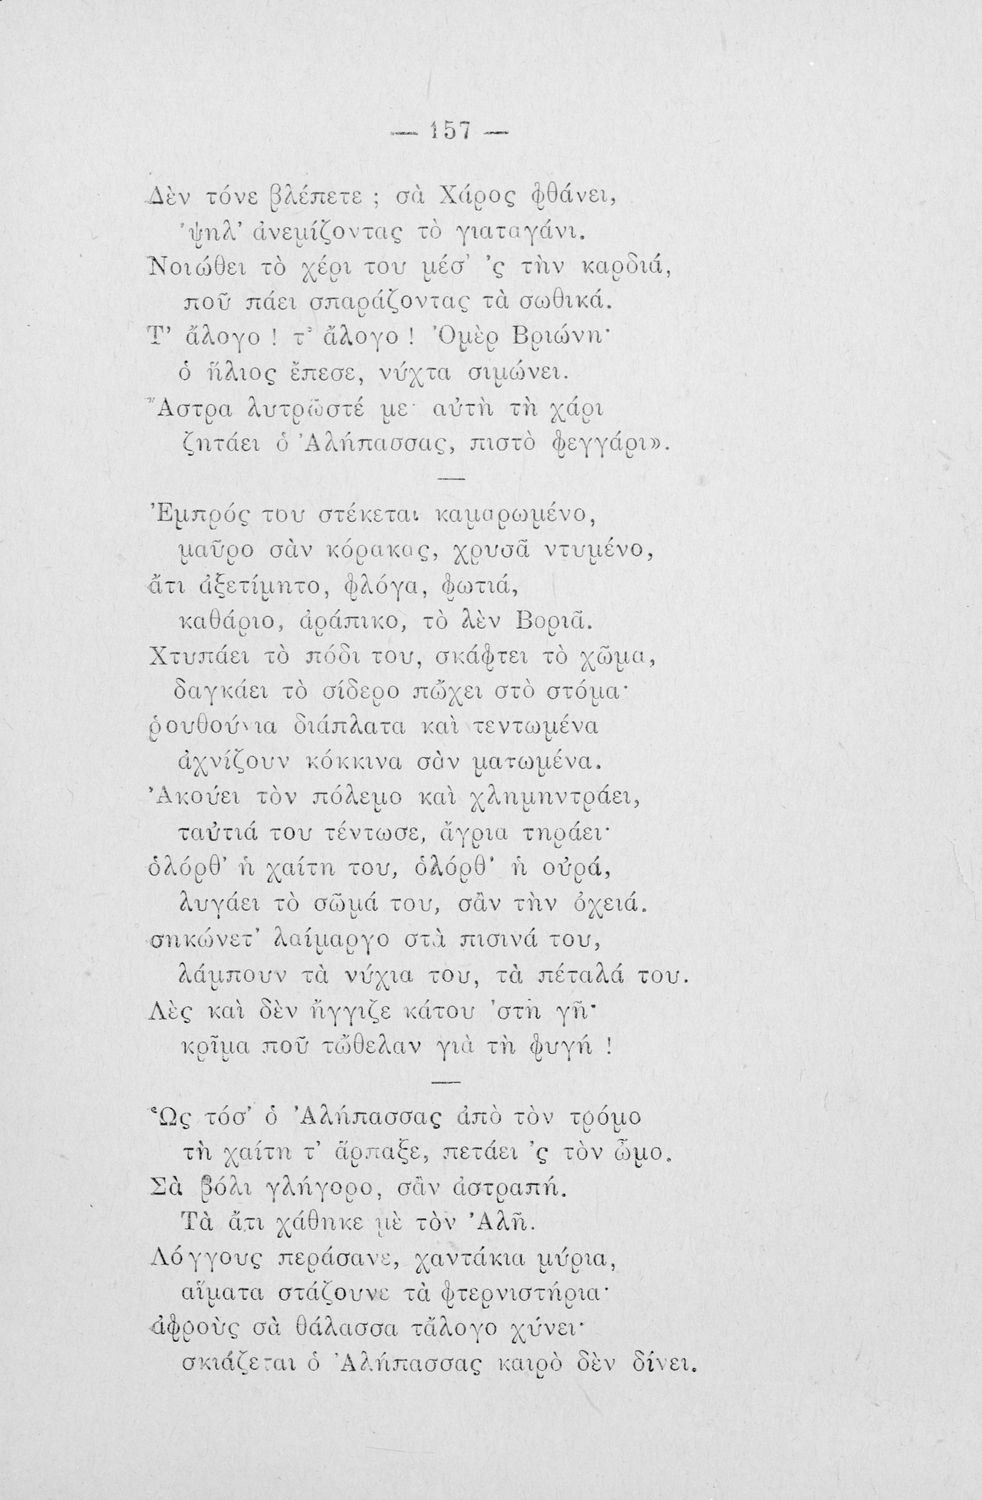 — 157 —
Δὲν τόνε βλέπετε ; σὰ Χάρος φθάνει,
'ψηλ' ἀνεμίζοντας τὸ γιαταγάνι.
Νοιώθει τὸ χέρι του μέσ' 'ς τὴν καρδιά,
ποῦ πάει σπαράζοντας τὰ σωθικά.
Τ' ἄλογο ! τ' ἄλογο ! Ὀμὲρ Βριώνη·
ὁ ἥλιος ἔπεσε, νύχτα σιμώνει.
Ἄστρα λυτρῶστέ με· αὐτὴ τὴ χάρι
ζητάει ὁ Ἀλήπασσας, πιστὸ φεγγάρι».
—
Ἐμπρός του στέκεται καμαρωμένο,
μαῦρο σὰν κόρακας, χρυσᾶ ντυμένο,
ἄτι ἀξετίμητο, φλόγα, φωτιά,
καθάριο, ἀράπικο, τὸ λὲν Βοριᾶ.
Χτυπάει τὸ πόδι του, σκάφτει τὸ χῶμα,
δαγκάει τὸ σίδερο πὤχει στὸ στόμα·
ῥουθούνια διάπλατα καὶ τεντωμένα
ἀχνίζουν κόκκινα σὰν ματωμένα.
Ἀκούει τὸν πόλεμο καὶ χλημηντράει,
ταὐτιά του τέντωσε, ἄγρια τηράει·
ὁλόρθ' ἡ χαίτη του, ὁλόρθ' ἡ οὐρά,
λυγάει τὸ σῶμά του, σἂν τὴν ὀχειά.
σηκώνετ' λαίμαργο στὰ πισινά του,
λάμπουν τὰ νύχια του, τὰ πέταλά του.
Λὲς καὶ δὲν ἤγγιζε κάτου 'στὴ γῆ·
κρῖμα ποῦ τὤθελαν γιὰ τὴ φυγή !
—
Ὡς τόσ' ὁ Ἀλήπασσας ἀπὸ τὸν τρόμο
τὴ χαίτη τ' ἅρπαξε, πετάει 'ς τὸν ὦμο.
Σὰ βόλι γλήγορο, σἂν ἀστραπή.
Τὰ ἄτι χάθηκε μὲ τὸν Ἀλῆ.
Λόγγους περάσανε, χαντάκια μύρια,
αἵματα στάζουνε τὰ φτερνιστήρια·
ἀφροὺς σὰ θάλασσα τἄλογο χύνει·
σκιάζεται ὁ Ἀλήπασσας καιρὸ δὲν δίνει.